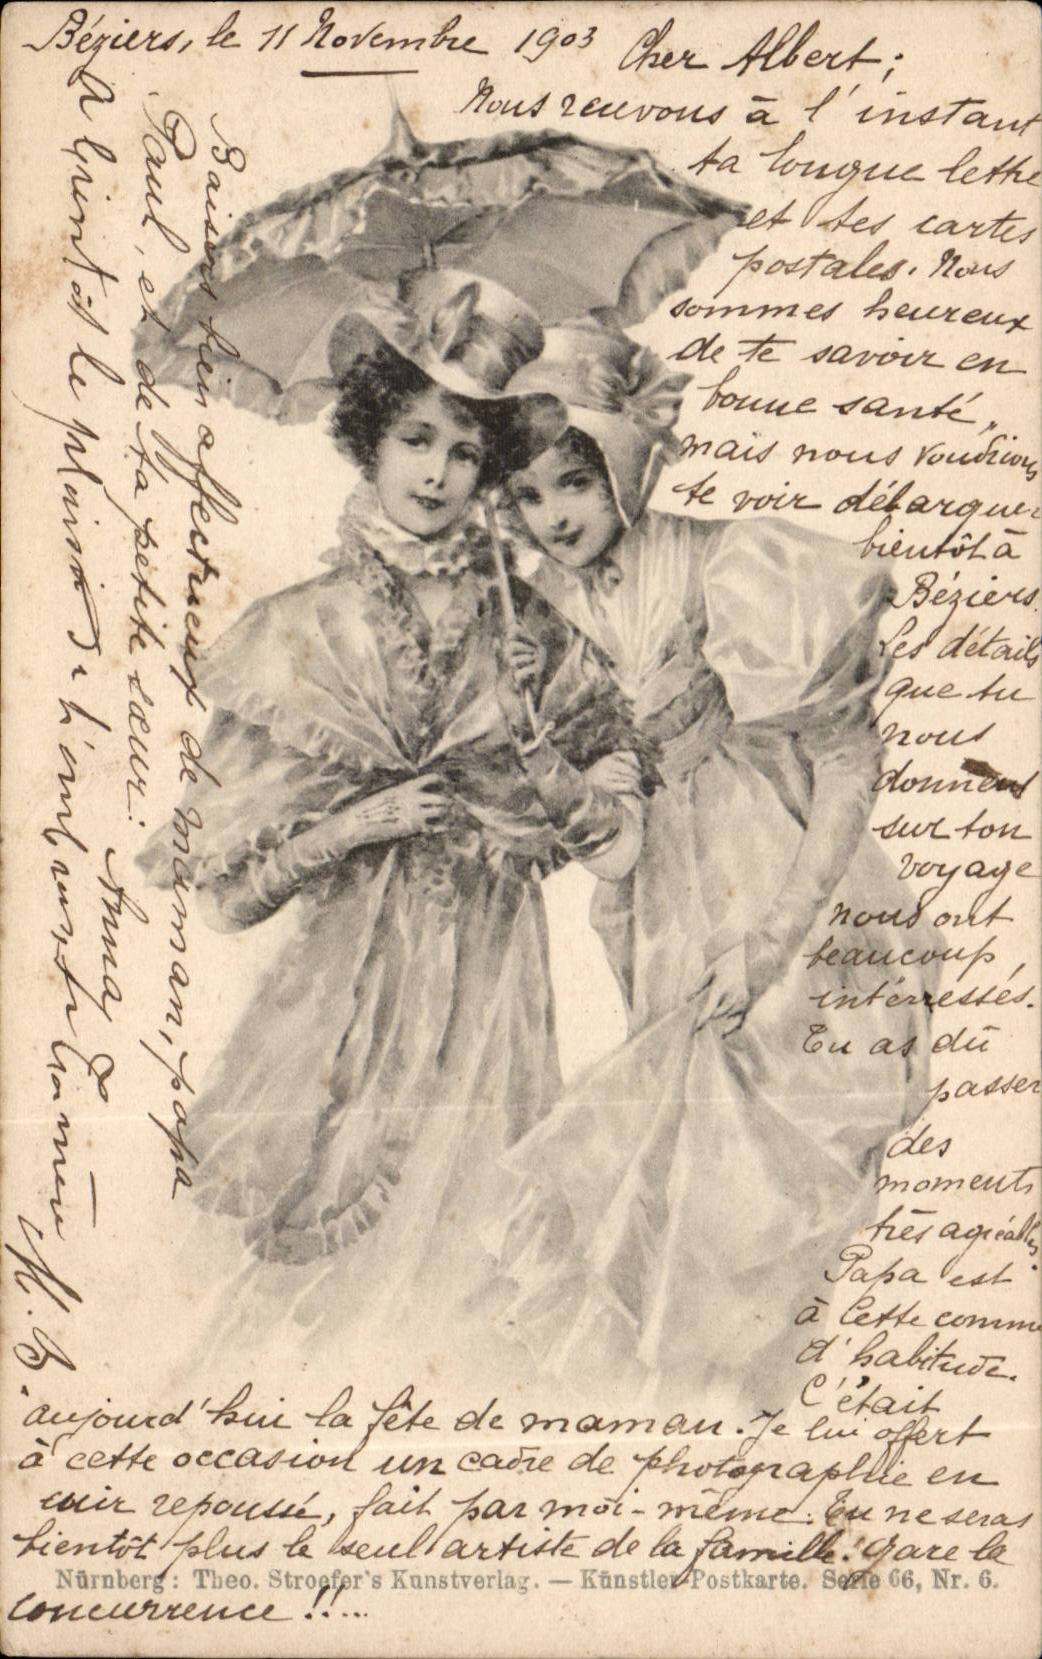 Béziers, le 11 Novembre 1903
Cher Albert;
Nous recevons à l'instant
ta longue lettre
et tes cartes
postales. Nous
sommes heureux
de te savoir en
bonne santé,
mais nous voudrions
te voir débarquer
bientôt à
Béziers.
Les détails
que tu
nous
donnes
sur ton
voyage
nous ont
beaucoup
intérressés.
Tu as dû
passer
des
moments
très agréables.
Papa est
à Cette comme
d'habitude.
C'était
aujourd'hui la fête de maman. Je lui offert
à cette occasion un cadre de photographie en
cuir repoussé, fait par moi-même. Tu ne seras
bientôt plus le seul artiste de la famille! Gare la
concurrence!!...
Baisers bien affectueux de maman, papa
Paul, et de ta petite sœur:
Anna
A bientôt le plaisir de t'embrasser
M. B.
Nürnberg: Theo. Stroefer's Kunstverlag. — Künstler-Postkarte. Serie 66, Nr. 6.